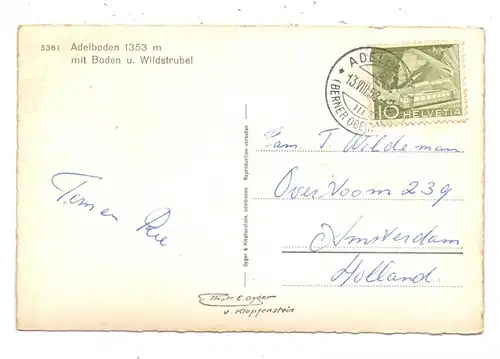 5361 Adelboden 1353 m
mit Boden u. Wildstrubel
ADEL
13.VIII.52
(BERNER OBERL
10 HELVETIA
Gyger & Klopfenstein, Adelboden Reproduktion verboten
Fam. T. Wildeman
OverToom 239
Amsterdam
Holland.
Phot. E. Gyger
u. Klopfenstein